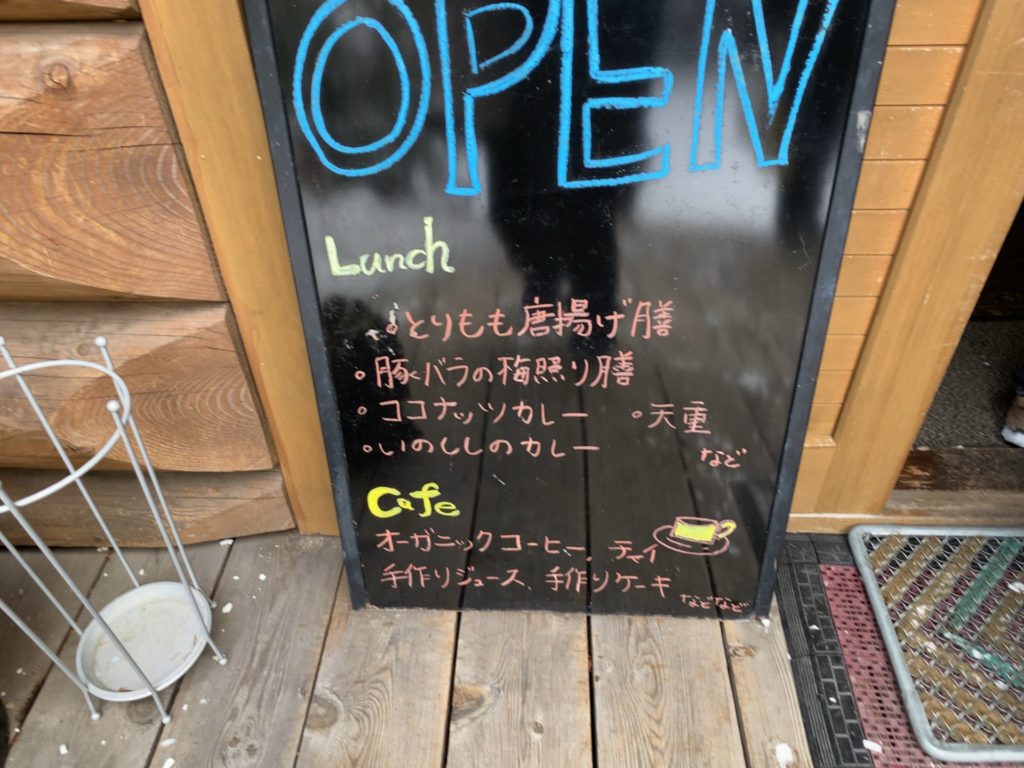 OPEN
Lunch
とりもも唐揚げ膳
。豚バラの梅照り膳
。ココナッツカレー 。天重
。いのししのカレー など
Cafe
オーガニックコーヒー、チャイ
手作りジュース、手作りケーキ
などなど